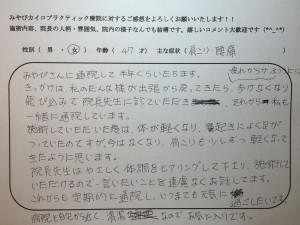 みやびカイロプラクティック療院に対するご感想をよろしくお願いいたします!!
施術内容、院長の人柄・雰囲気、院内の様子なんでも結構です。嬉しいコメント大歓迎です (*^_^*)
性別 ( 男 ・ 女 ) 年齢 ( 47 才 ) 主な症状 ( 肩こり・腰痛
みやびさんに通院して半年くらいたちます。
きっかけは、私のだんな様が出張から戻ってきたら、歩けなくなり
飛び込みで院長先生に診ていただき それから 私も
一緒に通院しています。
施術していただいた後は、体が軽くなり、寝起きによく足が
つっていたのですが、今はなくなり、肩こりも少しずつ軽くなって
きたように思います。
院長先生はやさしく体調をヒアリングして下さり、施術して
いただけるので、言いたいことを遠慮なくお話してます。
これからも定期的に通院し、いつまでも元気に
過ごしたいです
病院と自宅が近く、清潔 なので お気に入りです。